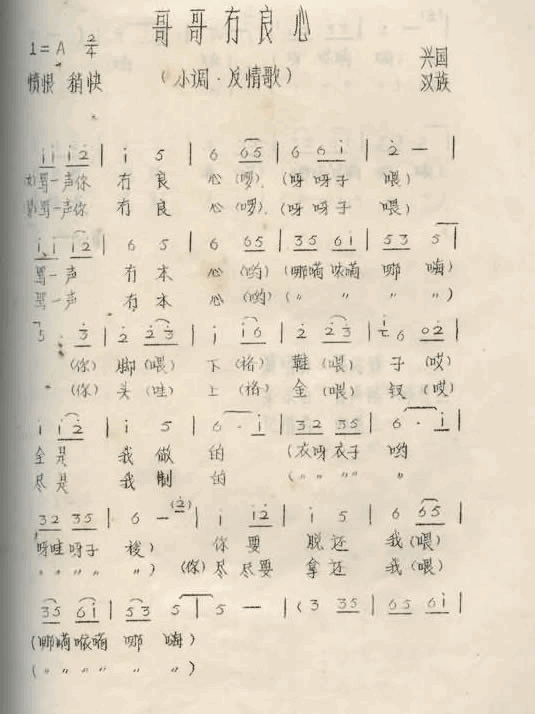 哥哥有良心
1=A 2/4
兴国
愤恨 稍快
(小调·反情歌)
汉族
i i i 2 | i 5 | 6 6 5 | 6 6 i | 2 — |
(女)骂一声你 有 良 心 (啰). (呀 呀子 喂)
骂一声你 有 良 心 (啰). (呀 呀子 喂)
i i i 2 | 6 5 | 6 6 5 | 3 5 6 i | 5 3 5 |
骂一声 有 本 心 (哟) (哪嗬咳嗬 哪 嗨)
骂一声 有 本 心 (哟) (〃 〃 〃 〃)
5 · 3 | 2 2 3 | i i 6 | 2 2 3 | i 6 0 2 |
(你) 脚 (喂) 下 (格) 鞋 (喂) 子 (哎)
(你) 头 (哇) 上 (格) 金 (喂) 钗 (哎)
i i 2 | i 5 | 6 · i | 3 2 3 5 | 6 · i |
全是 我 做 的 (衣呀衣子 哟
尽是 我 制 的 (〃 〃 〃 〃 〃
3 2 3 5 | 6 — (2) | i i 2 | i 5 | 6 6 5 |
呀哇呀子 梭) 你 要 脱 还 我 (喂)
〃 〃 〃 〃 〃) (你) 尽 尽要 拿 还 我 (喂)
3 5 6 i | 5 3 5 | 5 — | (3 3 5 | 6 5 6 i |
(哪嗬咳嗬 哪 嗨)
(〃 〃 〃 〃 〃 〃)